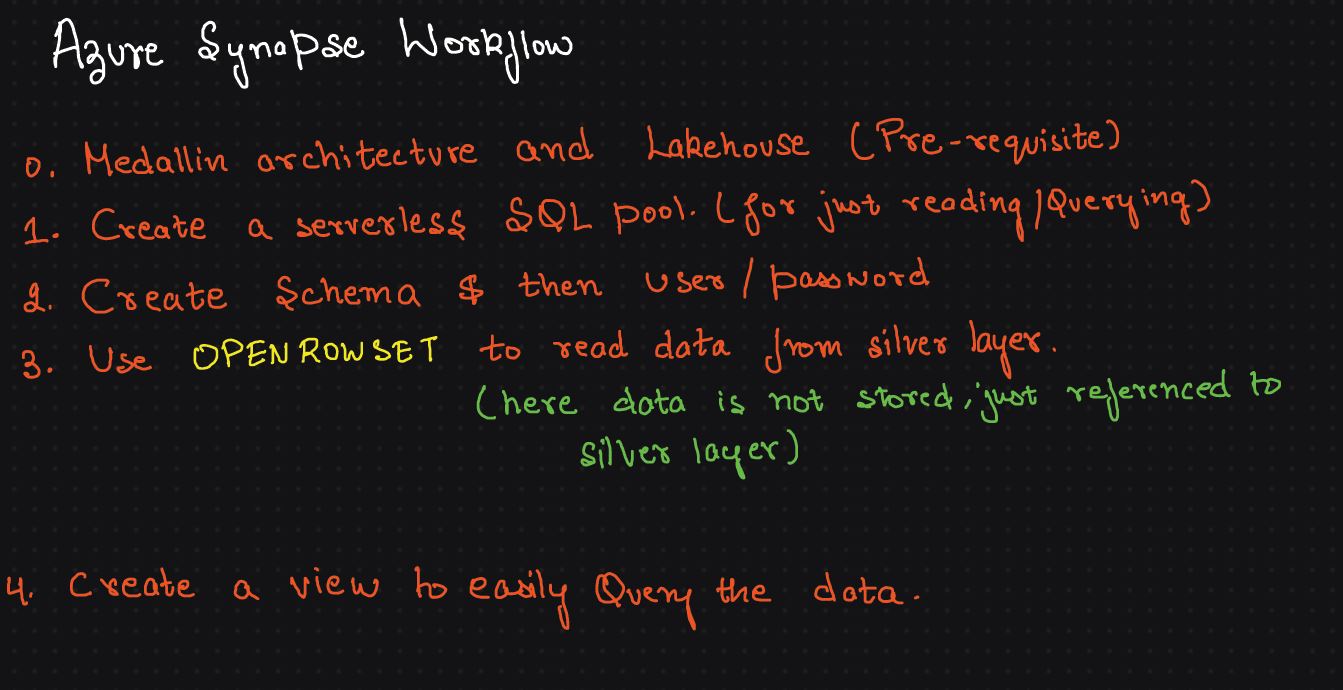 Azure Synapse Workflow
0. Medallin architecture and Lakehouse (Pre-requisite)
1. Create a serverless SQL pool. (for just reading/Querying)
2. Create Schema & then user/password
3. Use OPENROWSET to read data from silver layer.
(here data is not stored, just referenced to
silver layer)
4. Create a view to easily Query the data.